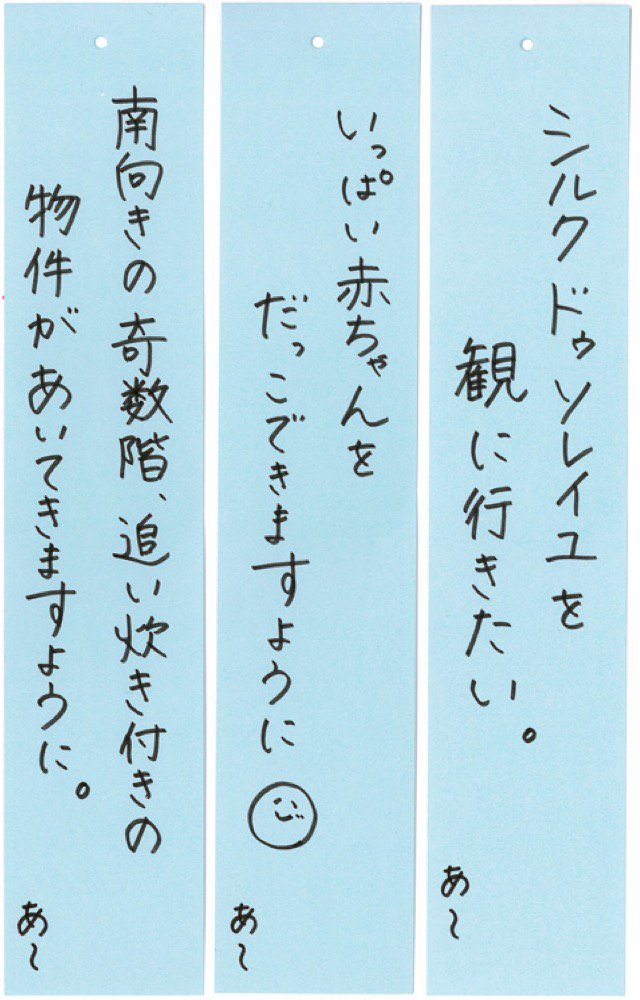 シルクドゥソレイユを
観に行きたい。
あ〜
いっぱい赤ちゃんを
だっこできますように
あ〜
南向きの奇数階、追い炊き付きの
物件があいてきますように。
あ〜